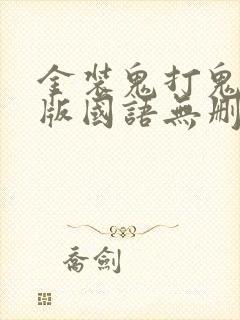 金装鬼打鬼
版國語無刪
喬劍